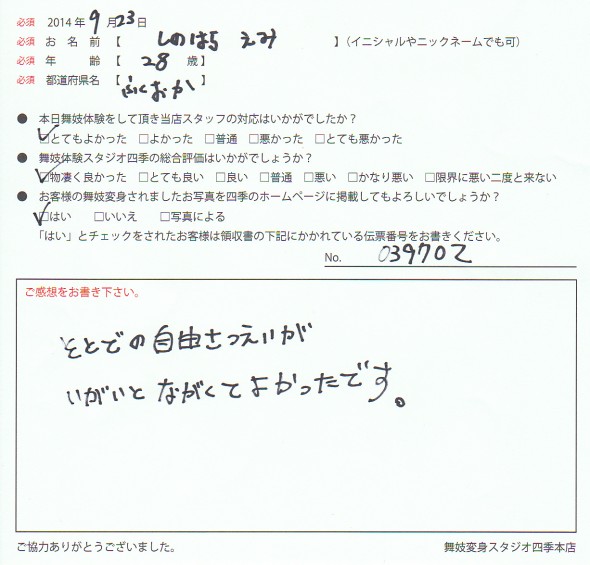 必須 2014 年 9 月 23 日
必須 お 名 前 【 しのはら えみ 】（イニシャルやニックネームでも可）
必須 年 齢 【 28 歳 】
必須 都道府県名 【 ふくおか 】
● 本日舞妓体験をして頂き当店スタッフの対応はいかがでしたか？
☑とてもよかった □よかった □普通 □悪かった □とても悪かった
● 舞妓体験スタジオ四季の総合評価はいかがでしょうか？
☑物凄く良かった □とても良い □良い □普通 □悪い □かなり悪い □限界に悪い二度と来ない
● お客様の舞妓変身されましたお写真を四季のホームページに掲載してもよろしいでしょうか？
☑はい □いいえ □写真による
「はい」とチェックをされたお客様は領収書の下記にかかれている伝票番号をお書きください。
No. 039702
ご感想をお書き下さい。
そとでの自由さつえいが
いがいと ながくてよかったです。
ご協力ありがとうございました。
舞妓変身スタジオ四季本店